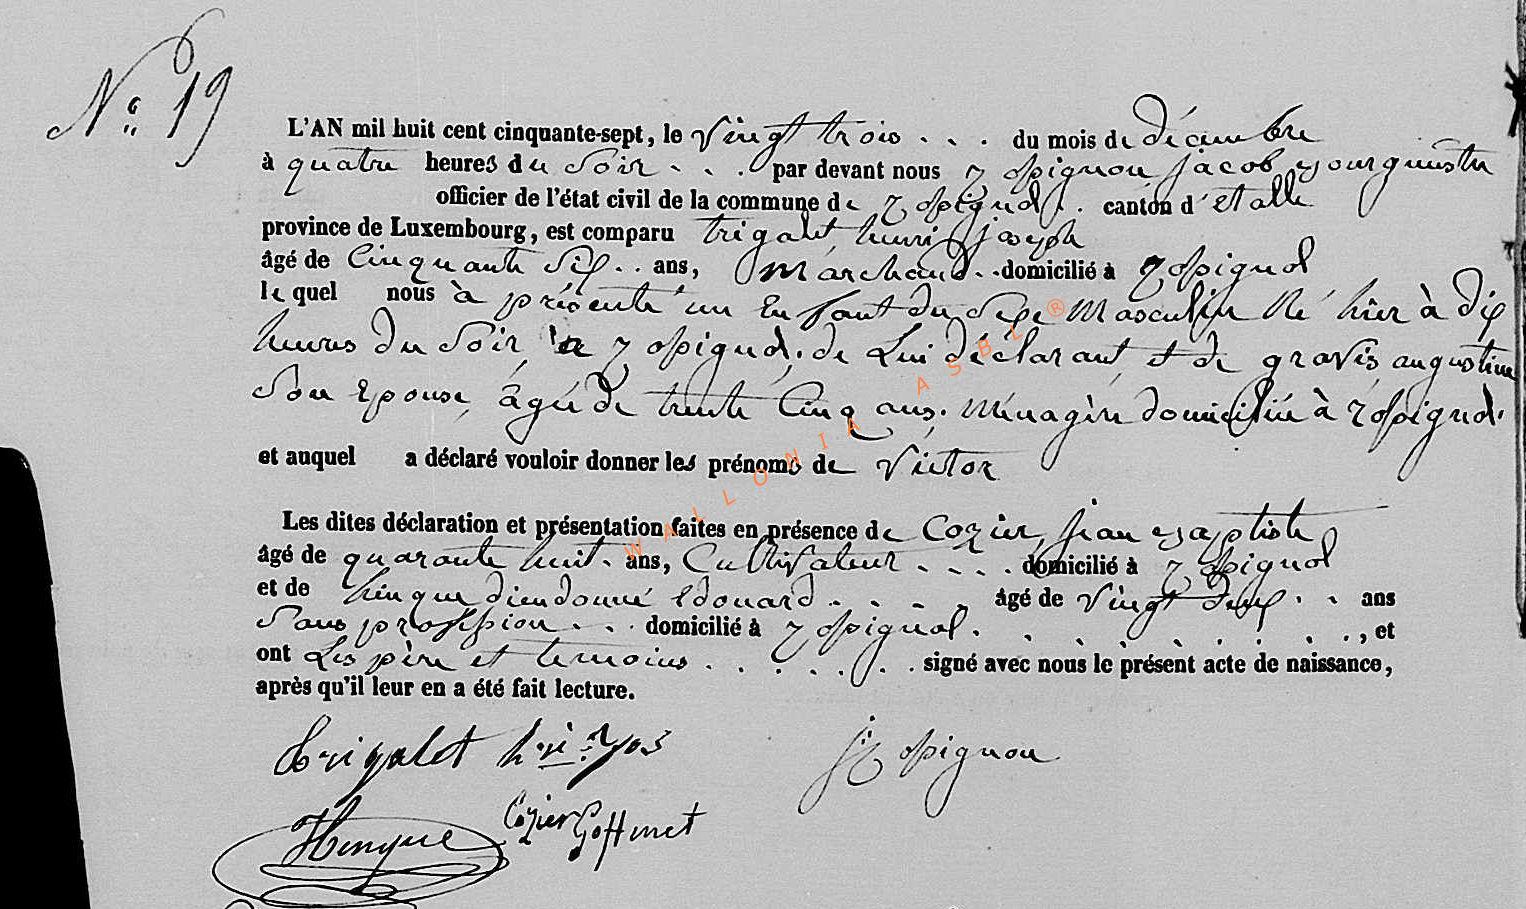 N° 19
L'AN mil huit cent cinquante-sept, le Vingt trois . . . du mois de décembre
à quatre heures du Soir . . . par devant nous rossignon jacob bourgumestre
officier de l'état civil de la commune de rossignol . . canton d'étalle
province de Luxembourg, est comparu trigalet, henri joseph
âgé de Cinquante Six . . ans, Marchand . . domicilié à rossignol
lequel nous à présenté un Enfant du Sexe Masculin Né hier à dix
heures du Soir à rossignol, de Lui déclarant, et de gravis augustine
Son Epouse, âgée de trente Cinq ans. Ménagère domiciliée à rossignol.
et auquel a déclaré vouloir donner les prénoms de Victor
Les dites déclaration et présentation faites en présence de Cozier, jean baptiste
âgé de quarante huit . ans, Cultivateur . . . . domicilié à rossignol
et de hinque dieudonné édouard . . . . . âgé de Vingt deux . . ans
Sans profession . . . domicilié à rossignol . . . . . . . . . , et
ont Les père et temoins . . . . . . signé avec nous le présent acte de naissance,
après qu'il leur en a été fait lecture.
Trigalet h.ri jos
j: rossignon
Cozier Goffinet
Hinque
WALLONIA ASBL ®